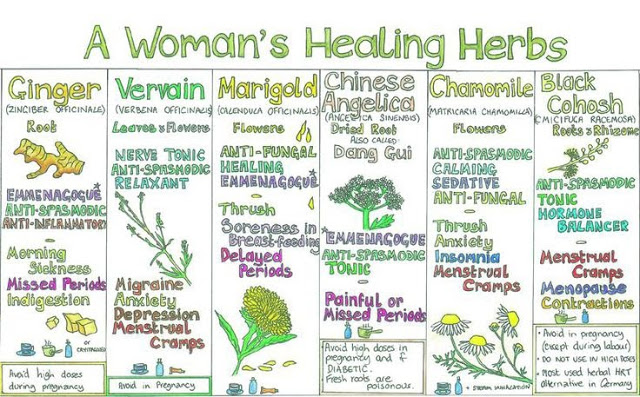 A Woman's Healing Herbs
Ginger
(ZINGIBER OFFICINALE)
Root
EMMENAGOGUE*
ANTI-SPASMODIC
ANTI-INFLAMMATORY
-
Morning
Sickness
Missed Periods
Indigestion
or
CRYSTALLISED
Avoid high doses
during pregnancy
Vervain
(VERBENA OFFICINALIS)
Leaves & Flowers
NERVE TONIC
ANTI-SPASMODIC
RELAXANT
Migraine
Anxiety
Depression
Menstrual
Cramps
Avoid in Pregnancy
Marigold
(CALENDULA OFFICINALIS)
Flowers
ANTI-FUNGAL
HEALING
EMMENAGOGUE*
-
Thrush
Soreness in
Breast-feeding
Delayed
Periods
Chinese
Angelica
(ANGELICA SINENSIS)
Dried Root
ALSO CALLED
Dang Gui
EMMENAGOGUE*
ANTI-SPASMODIC
TONIC
-
Painful or
Missed Periods
Avoid high doses in
pregnancy and if
DIABETIC.
Fresh roots are
poisonous.
Chamomile
(MATRICARIA CHAMOMILLA)
Flowers
ANTI-SPASMODIC
CALMING
SEDATIVE
ANTI-FUNGAL
-
Thrush
Anxiety
Insomnia
Menstrual
Cramps
+ STEAM INHALATION
Black
Cohosh
(CIMICIFUGA RACEMOSA)
Roots & Rhizome
ANTI-SPASMODIC
TONIC
HORMONE
BALANCER
-
Menstrual
Cramps
Menopause
Contractions
• Avoid in pregnancy
(except during labour)
• DO NOT USE IN HIGH DOSES
• Most used herbal HRT
alternative in Germany